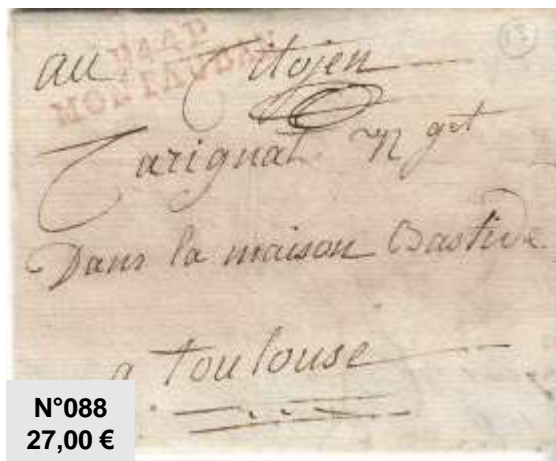 P44P
MONTAUBAN
13
au Citoyen
Carignat N gt
Dans la maison Bastide
a toulouse
N°088
27,00 €